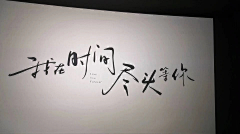 我在时间尽头等你